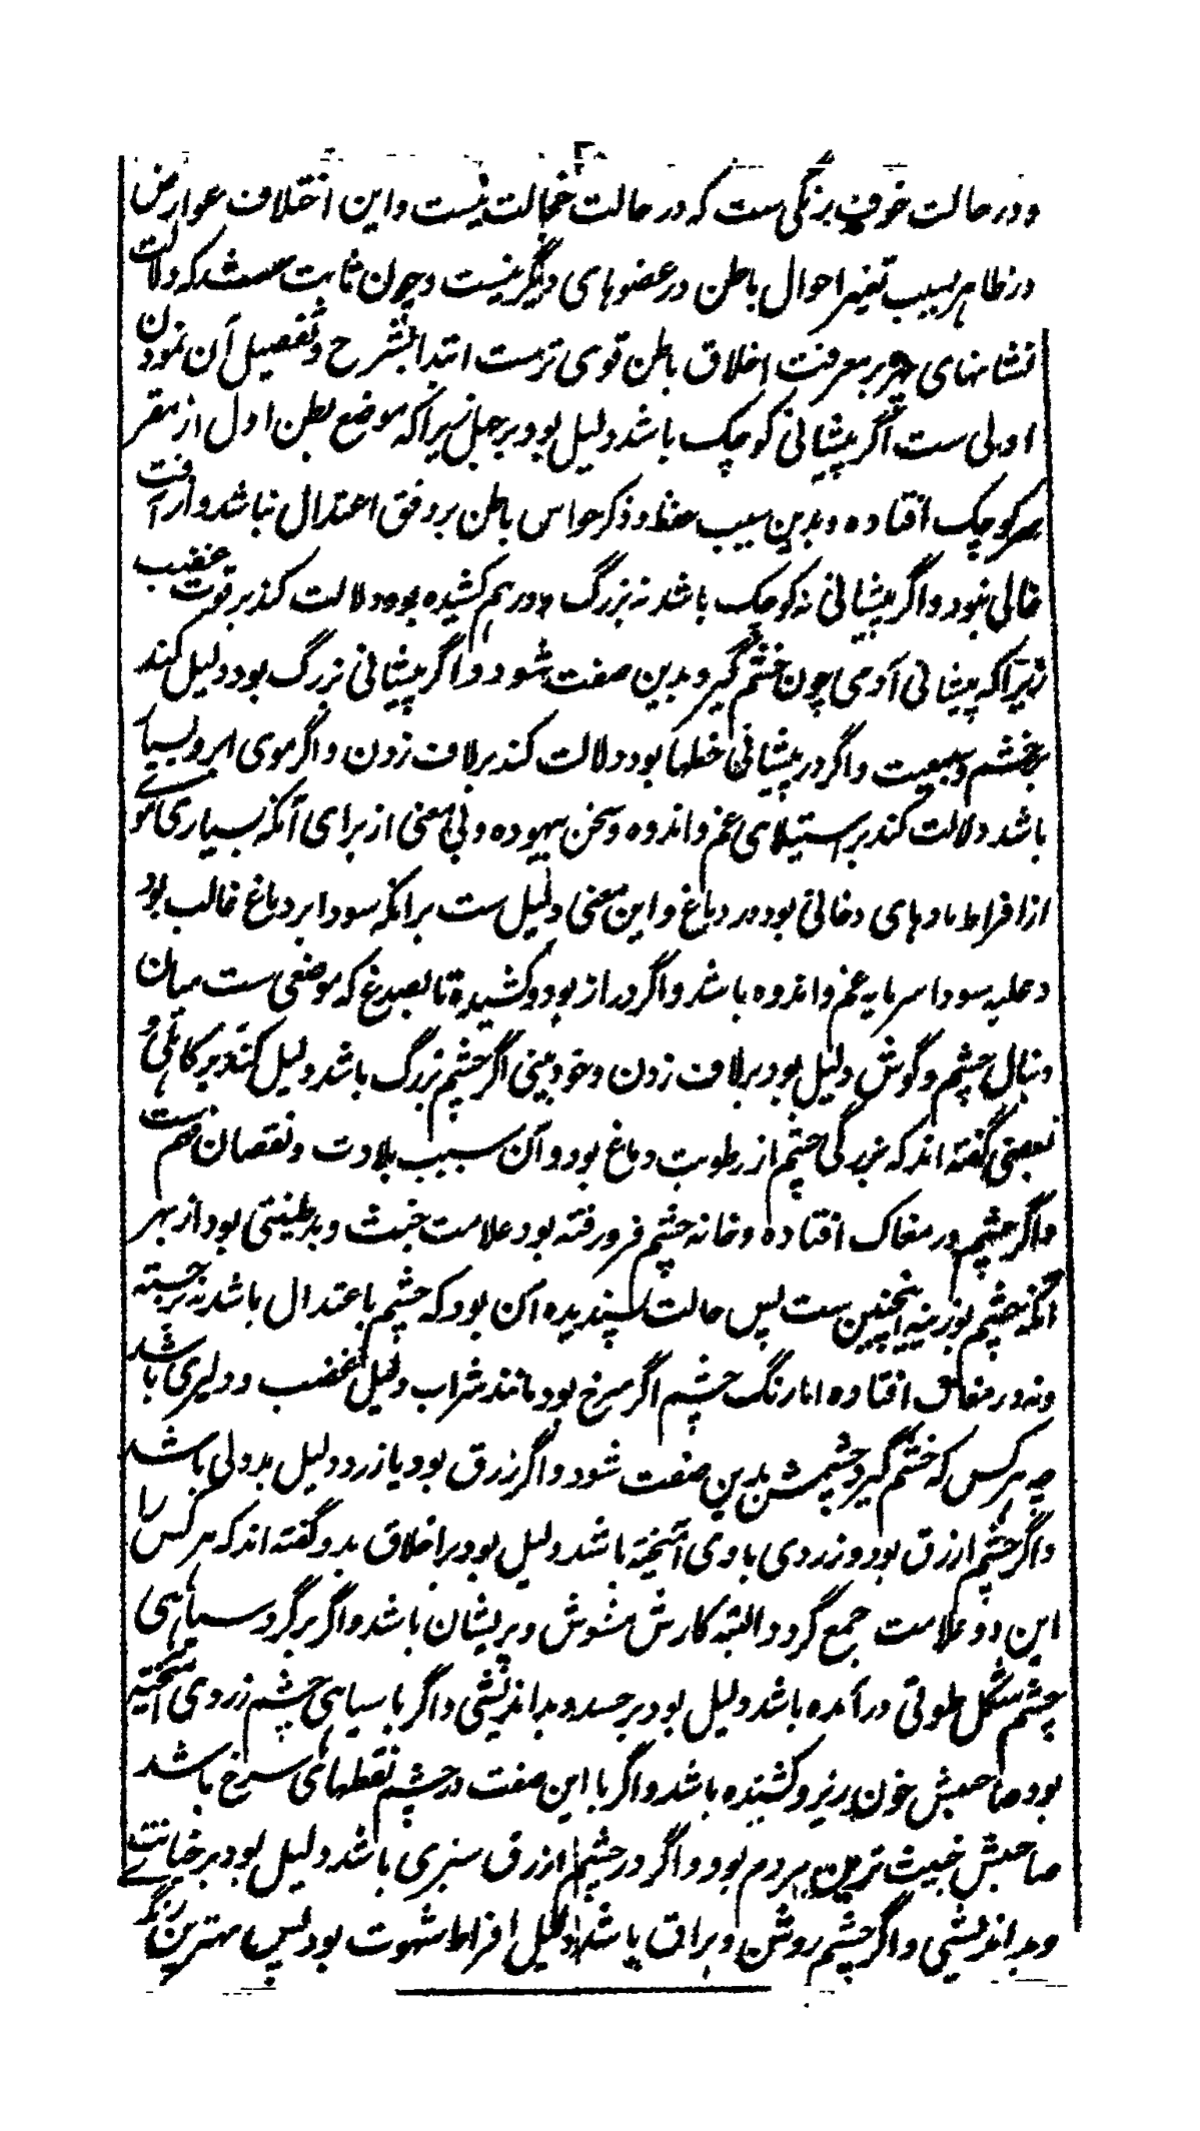 و در حالت خوف برنگی ست که در حالت خجالت نیست و این اختلاف عوارض
در ظاهر بسبب تغیر احوال باطن در عضوهای دیگر نیست و چون ثابت شد که دلالت
نشانهای چهره بر معرفت اخلاق باطن قوی ترست ابتدا بشرح و تفصیل آن نمودن
اولی ست اگر پیشانی کوچک باشد دلیل بود بر جهل زیراکه موضع بطن اول از مقر
سر کوچک افتاده و بدین سبب حفظ و ذکر حواس باطن بر وفق اعتدال نباشد و از آفت
خالی نبود و اگر پیشانی نه کوچک باشد نه بزرگ و درهم کشیده بود دلالت کند بر قوت غضب
زیراکه پیشانی آدمی چون خشم گیرد بدین صفت شود و اگر پیشانی بزرگ بود دلیل کند
بر خشم و سبعیت و اگر در پیشانی خطها بود دلالت کند بر لاف زدن و اگر موی ابرو بسیار
باشد دلالت کند بر استیلای غم و اندوه و سخن بیهوده و بی معنی از برای آنکه بسیاری مو
از افراط مادهای دخانی بود در دماغ و این معنی دلیل ست برانکه سودا بر دماغ غالب بود
و غلبه سودا سرمایه غم و اندوه باشد و اگر دراز بود و کشیده تا بصدغ که موضعی ست میان
دنبال چشم و گوش دلیل بود بر لاف زدن و خودبینی اگر چشم بزرگ باشد دلیل کند بر کاهلی و
بعضی گفته اند که بزرگی چشم از رطوبت دماغ بود و آن سبب بلادت و نقصان فهم ست
و اگر چشم در مغاک افتاده و خانه چشم فرو رفته بود علامت خبث و بدطینتی بود از بهر
آنکه چشم بوزینه اینچنین ست پس حالت پسندیده آن بود که چشم باعتدال باشد نه برجسته
و نه در مغاک افتاده اما رنگ چشم اگر سرخ بود مانند شراب دلیل غضب و دلیری باشد
چه هر کس که خشم گیرد چشمش بدین صفت شود و اگر ازرق بود یا زرد دلیل بددلی باشد
و اگر چشم ازرق بود و زردی با وی آمیخته باشد دلیل بود بر اخلاق بد و گفته اند که هر کس را
این دو علامت جمع گردد البته کارش مشوش و پریشان باشد و اگر بر گرد سیاهی
چشم شکل طوقی درآمده باشد دلیل بود بر حسد و بداندیشی و اگر با سیاهی چشم زردی آمیخته
بود صاحبش خون ریز و کشنده باشد و اگر با این صفت در چشم نقطهای سرخ باشد
صاحبش خبیث ترین مردم بود و اگر در چشم ازرق سبزی باشد دلیل بود بر خیانت
و بداندیشی و اگر چشم روشن و براق باشد دلیل افراط شهوت بود پس بهترین رنگ